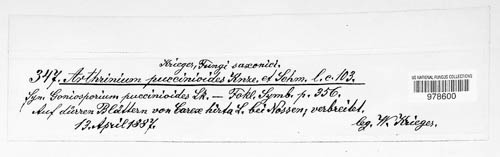 Krieger, Fungi saxonici.
347. Arthrinium puccinioides Knze. et Schm. l. c. 103.
Syn. Goniosporium puccinioides Lk. — Fckl. Symb. p. 356.
Auf dürren Blättern von Carex hirta L. bei Nossen, verbreitet.
13. April 1887. leg. W. Krieger.
US NATIONAL FUNGUS COLLECTIONS
978600